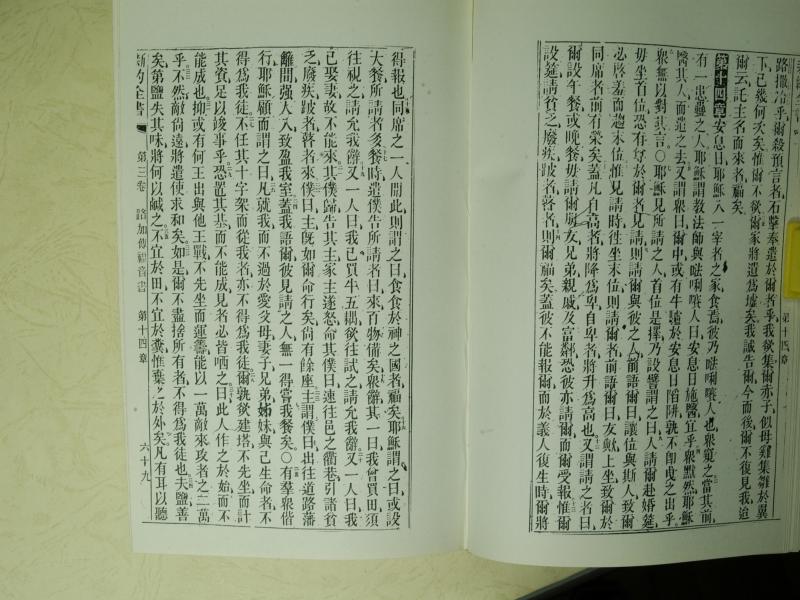 路撒冷乎爾殺預言者石擊奉遣於爾者乎我欲集爾赤子似母雞集雛於翼
下已幾何次矣惟爾不欲爾家將遺爲墟矣我誠告爾今而後爾不復見我迨
爾云託主名而來者福矣
第十四章安息日耶穌入一宰者之家食焉彼乃㗑唎㘔人也衆窺之當其前
有一患蠱之人耶穌謂教法師與㗑唎㘔人曰安息日施醫宜乎衆默然耶穌
醫其人而遣之去又謂衆曰爾中或有牛驢於安息日陷阱孰不卽曳之出乎
衆無以對其言〇耶穌見所請之人首位是擇乃設譬謂之曰人請爾赴婚筵
毋坐首位恐有尊於爾者見請則請爾與彼之人前語爾曰讓位與斯人致爾
必啓羞而趨末位惟見請時往坐末位則請爾者前語爾曰友歟上坐致爾於
同席者前有榮矣蓋凡自高者將降爲卑自卑者將升爲高也又謂請之者曰
爾設午餐或晚餐毋請爾朋友兄弟親戚及富鄰恐彼亦請爾而爾受報惟爾
設筵請貧乏廢疾跛者瞽者則爾福矣蓋彼不能報爾而於義人復生時爾將
得報也同席之一人聞此則謂之曰食食於神之國者福矣耶穌謂之曰或設
大餐所請者多餐時遣僕告所請者曰來百物備矣衆辭其一曰我曾買田須
往視之請允我辭又一人曰我已買牛五耦欲往試之請允我辭又一人曰我
已娶妻故不能來其僕歸告其主家主遂怒命其僕曰速往邑之衢巷引諸貧
乏廢疾跛者瞽者來僕曰主旣如爾命行矣尙有餘座主謂僕曰出往道路藩
籬間强人入致盈我室蓋我語爾彼見請之人無一得嘗我餐矣〇有羣衆偕
行耶穌顧而謂之曰凡就我而不過於愛父母妻子兄弟姊妹與己生命者不
得爲我徒不任其十字架而從我者亦不得爲我徒爾孰欲建塔不先坐而計
其資足以竣事乎恐置其基而不能成見者必皆哂之曰此人作之於始而不
能成也抑或有何王出與他王戰不先坐而運籌能以一萬敵來攻者之二萬
乎不然敵尙遠將遣使求和矣如是爾不盡捨所有者不得爲我徒也夫鹽善
矣第鹽失其味將何以鹹之不宜於田不宜於糞惟棄之於外矣凡有耳以聽
新約全書 第三卷 路加傳福音書 第十四章 六十九